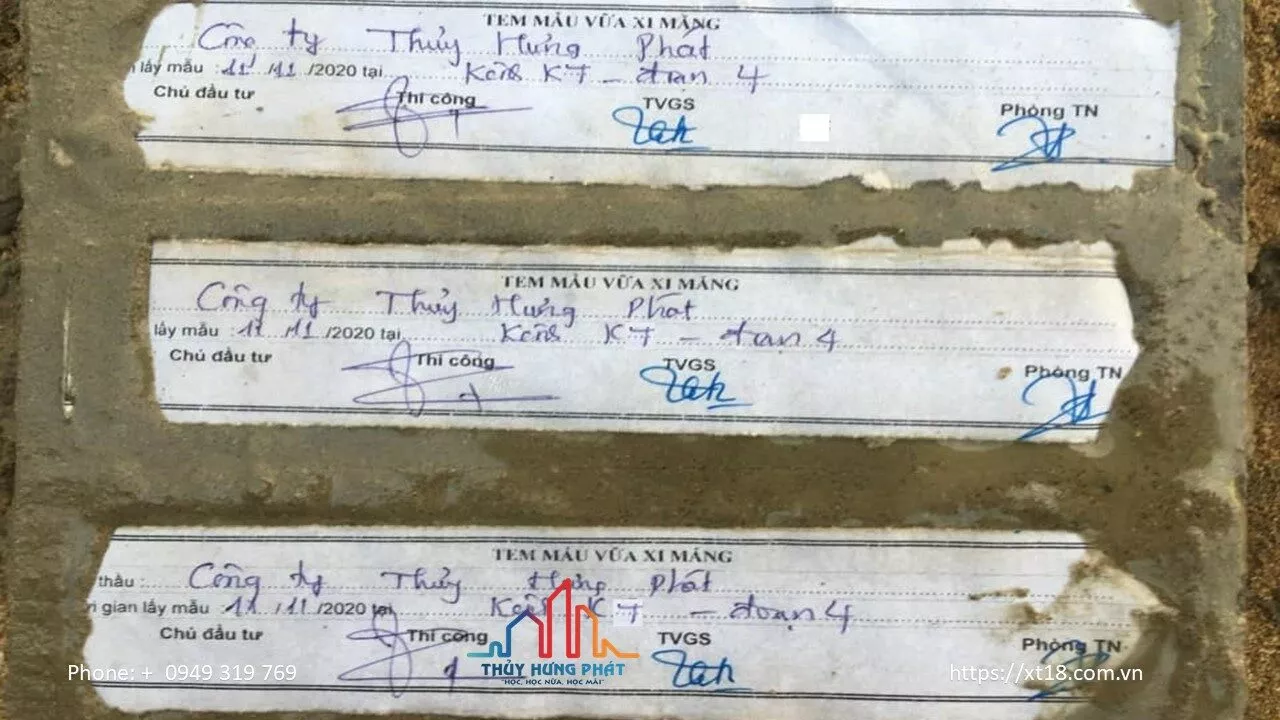 TEM MẪU VỮA XI MĂNG
Công ty Thủy Hưng Phát
lấy mẫu : 11 /11 /2020 tại Kênh K7 - đoạn 4
Chủ đầu tư Thi công TVGS Phòng TN
TEM MẪU VỮA XI MĂNG
Công ty Thủy Hưng Phát
lấy mẫu : 11 /11 /2020 tại Kênh K7 - đoạn 4
Chủ đầu tư Thi công TVGS Phòng TN
TEM MẪU VỮA XI MĂNG
thầu : Công ty Thủy Hưng Phát
gian lấy mẫu : 11 /11 /2020 tại Kênh K7 - đoạn 4
Chủ đầu tư Thi công TVGS Phòng TN
Phone: + 0949 319 769
THỦY HƯNG PHÁT
"HỌC, HỌC NỮA, HỌC MÃI"
https://xt18.com.vn